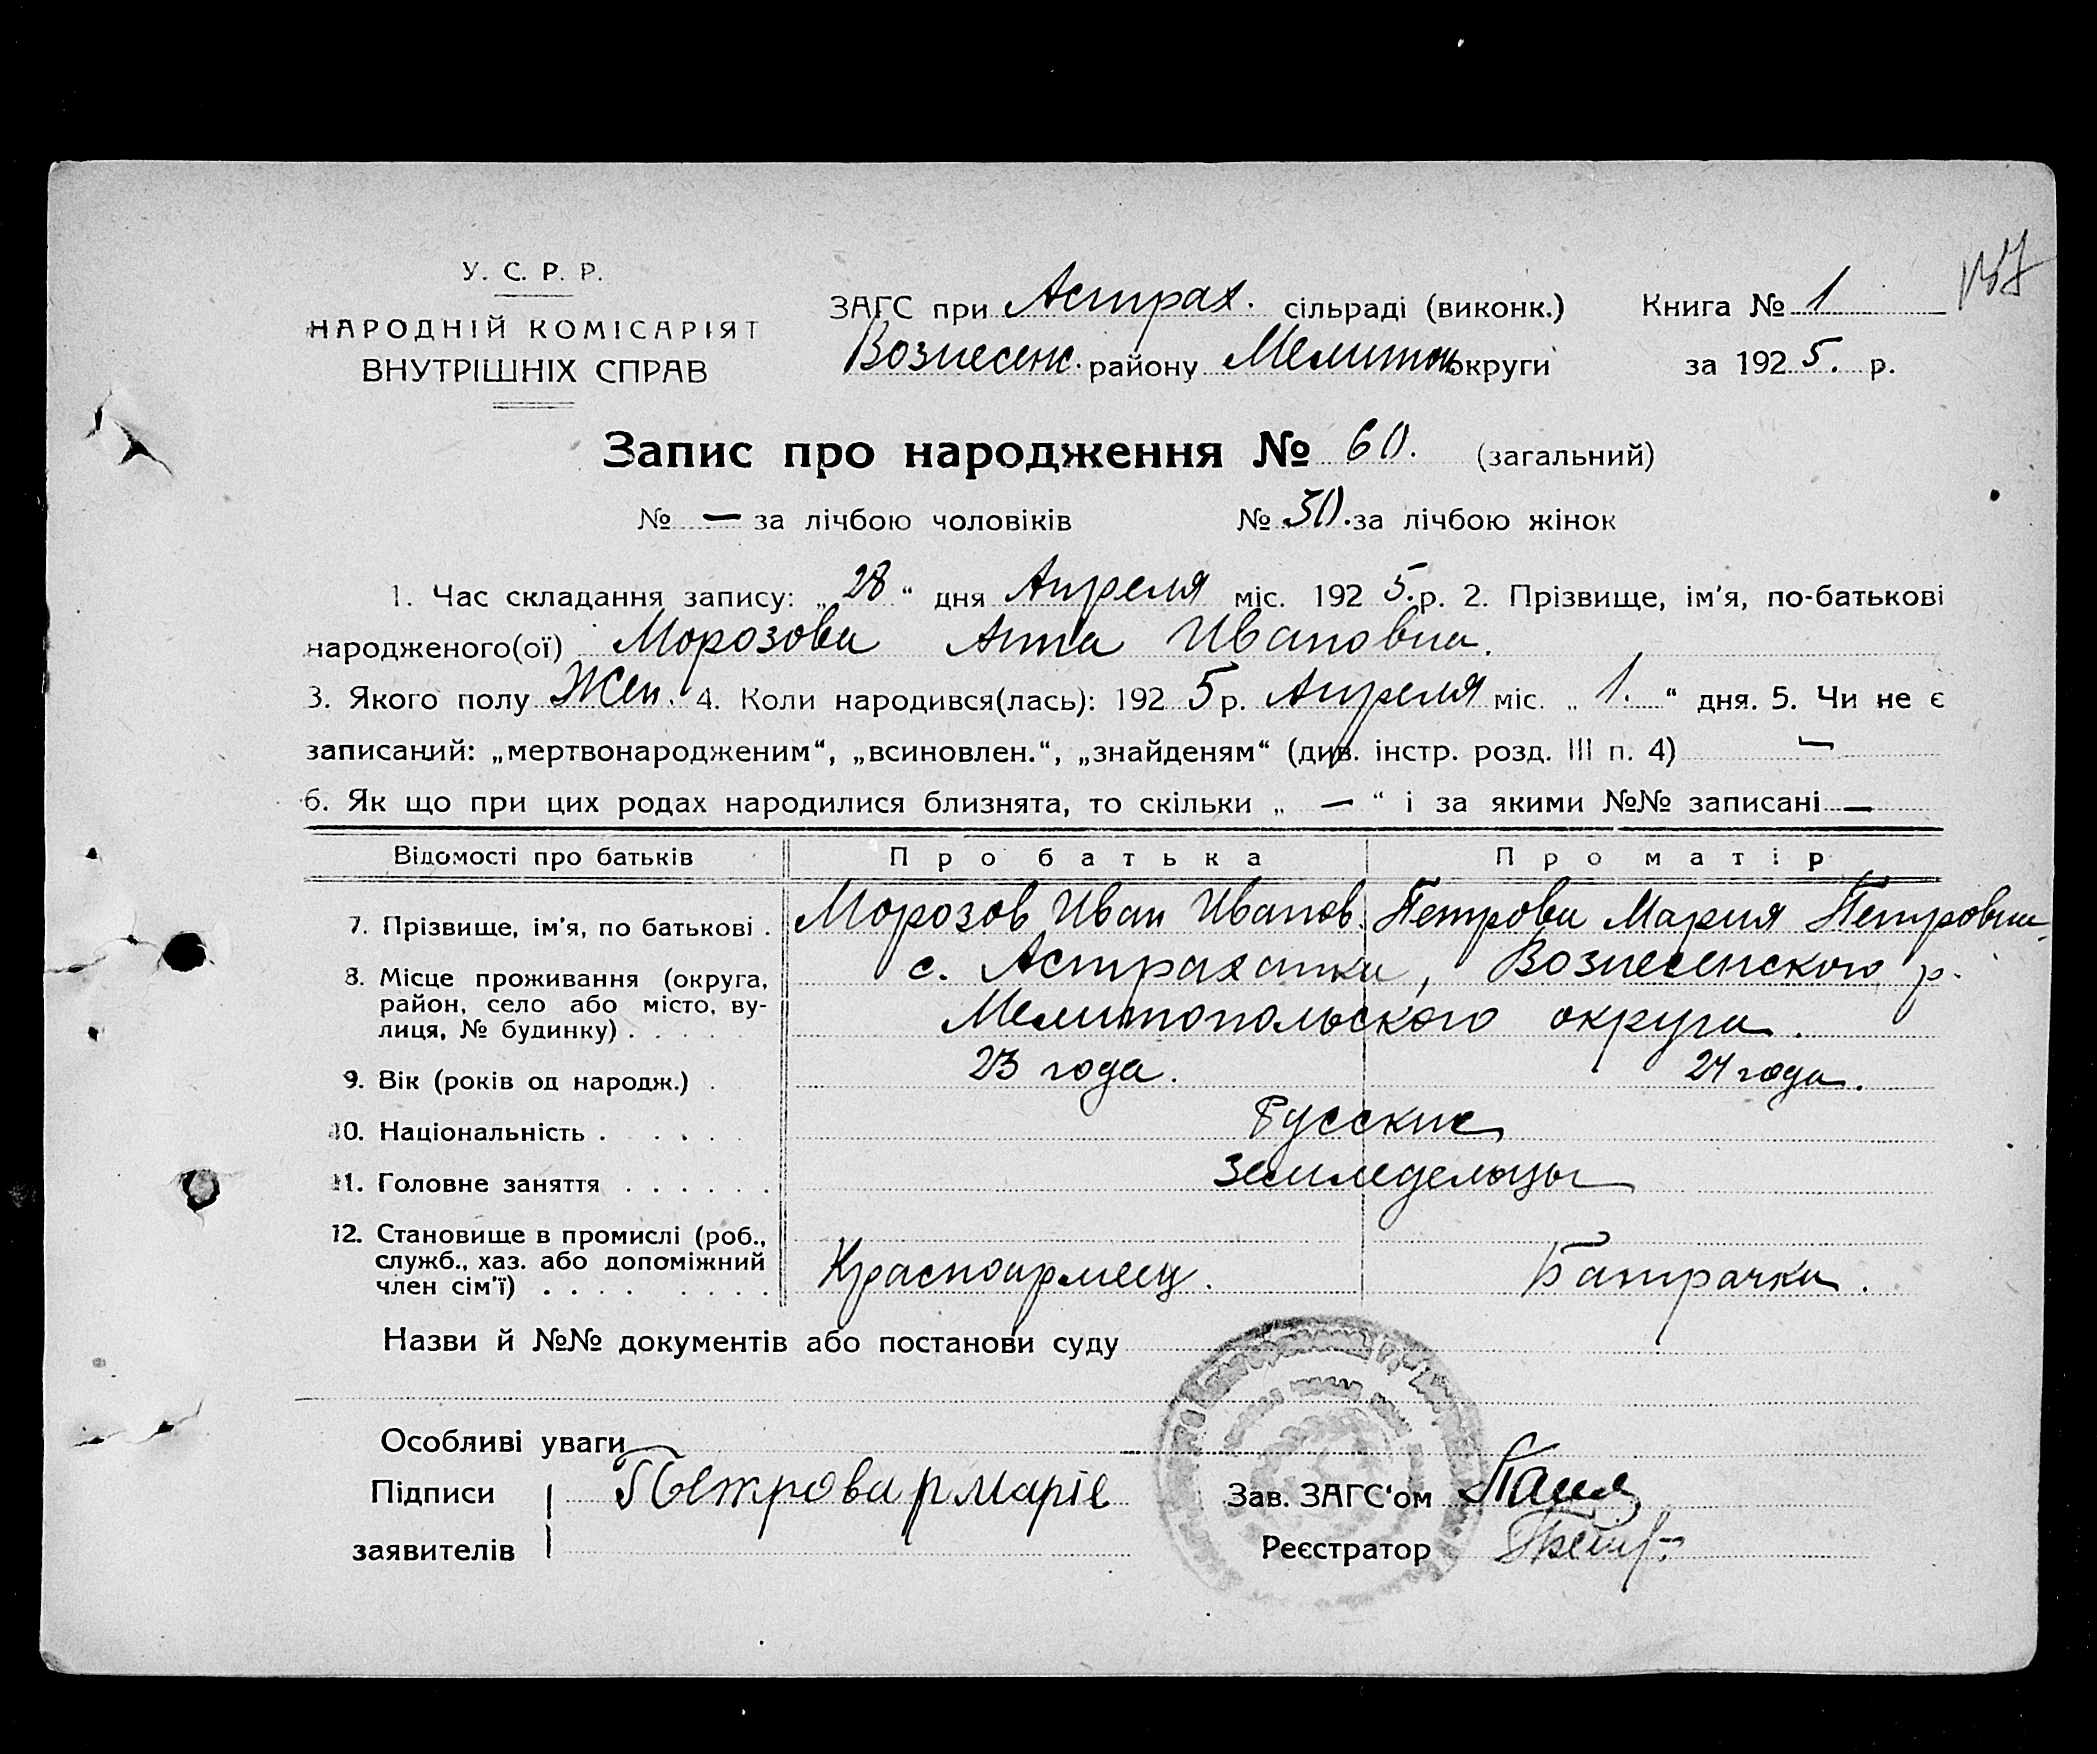 У. С. Р. Р.
НАРОДНІЙ КОМІСАРІЯТ
ВНУТРІШНІХ СПРАВ
ЗАГС при Астрах. сільраді (виконк.) Книга № 1
Вознесенс. району Мелитоп округи за 1925. р.
Запис про народження № 60. (загальний)
№ — за лічбою чоловіків № 30. за лічбою жінок
1. Час складання запису: „28“ дня Апреля міс. 1925. р. 2. Прізвище, ім'я, по-батькові
народженого(ої) Морозова Анна Ивановна.
3. Якого полу Жен. 4. Коли народився(лась): 1925 р. Апреля міс. „1.“ дня. 5. Чи не є
записаний: „мертвонародженим“, „всиновлен.“, „знайденям“ (див. інстр. розд. III п. 4) —
6. Як що при цих родах народилися близнята, то скільки „—“ і за якими №№ записані —
Відомості про батьків Про батька Про матір
7. Прізвище, ім'я, по батькові . Морозов Иван Иванов. Петрова Мария Петровна.
8. Місце проживання (округа, район, село або місто, ву-лиця, № будинку) . . . . . с. Астраханка, Вознесенского р.
Мелитопольского округа.
9. Вік (років од народж.) . 23 года. 24 года.
10. Національність . . . . . Русские
11. Головне заняття . . . . . . Земледельцы
12. Становище в промислі (роб.,
служб., хаз. або допоміжний
член сім'ї) . . . . . . . . Красноармеец. Батрачка.
Назви й №№ документів або постанови суду
Особливі уваги
Підписи Петрова Маріе Зав. ЗАГС'ом
заявителів Реєстратор